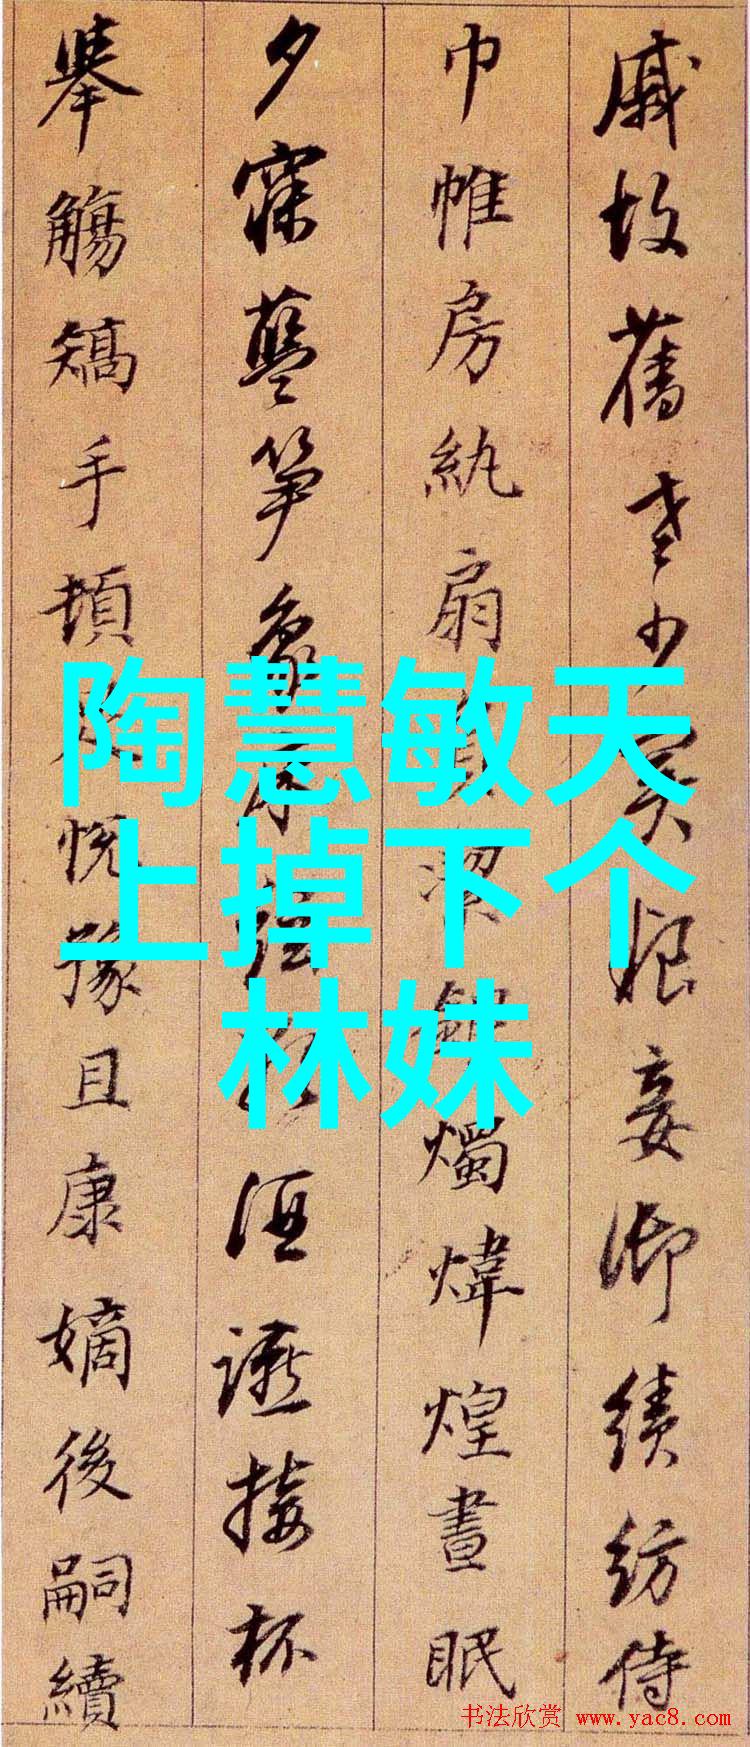 戚故舊老少異粮妾御績紡侍
巾帷房紈扇員潔銀燭煒煌晝眠
夕寐藍笋象床弦歌酒讌接杯
舉觴矯手頓足悅豫且康嫡後嗣續
陶慧敏天
上掉下个
林妹
书法欣赏 www.yac8.com